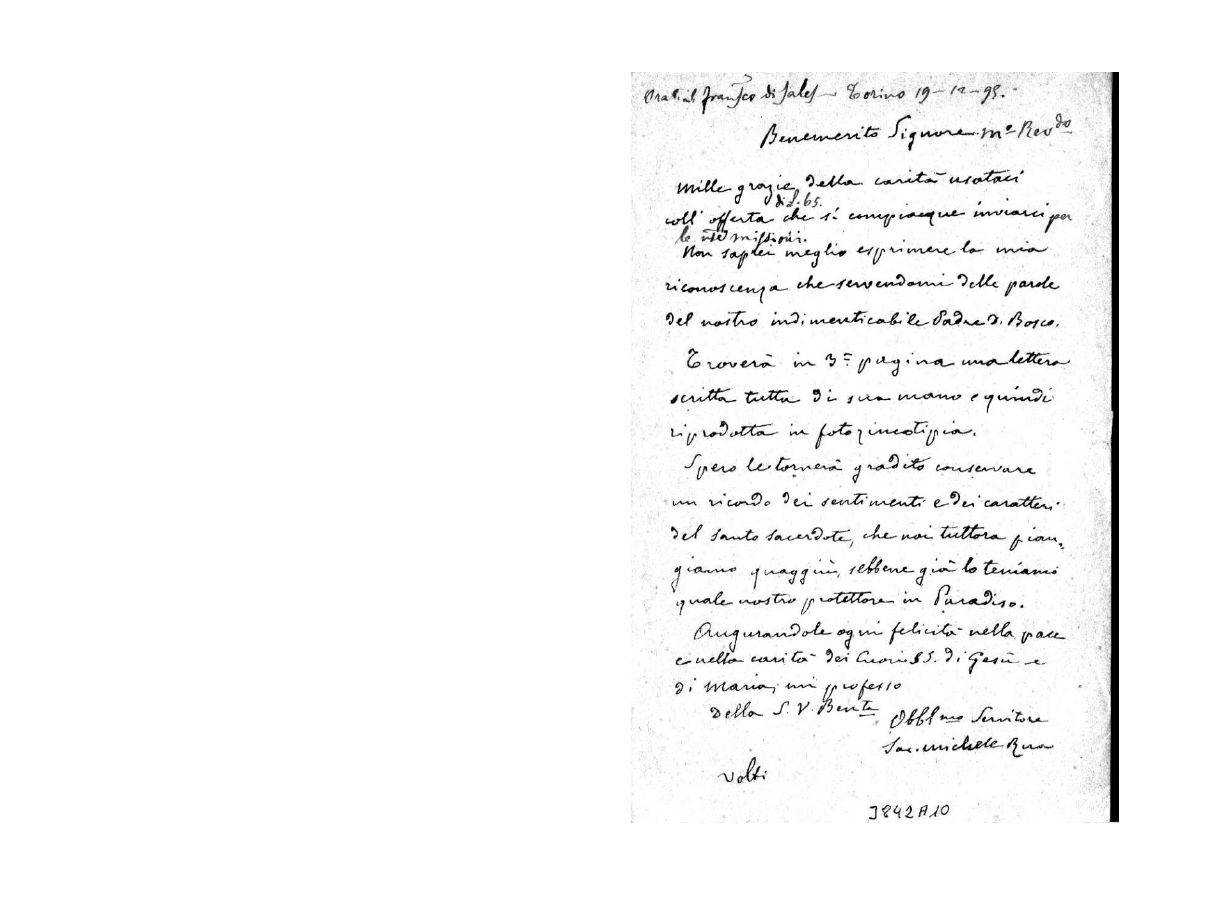 Orat. di Fran.sco di Sales – Torino 19–12–95.
Benemerito Signore m.o Rev.do
Mille grazie della carità usataci
di L. 65.
coll' offerta che si compiacque inviarci per
le nre missioni.
Non saprei meglio esprimere la mia
riconoscenza che servendomi delle parole
del nostro indimenticabile Padre D. Bosco.
Troverà in 3a pagina una lettera
scritta tutta di sua mano e quindi
riprodotta in fotozincotipia.
Spero le tornerà gradito conservare
un ricordo dei sentimenti e dei caratteri
del santo sacerdote, che noi tuttora pian-
giamo quaggiù, sebbene già lo teniamo
quale nostro protettore in Paradiso.
Augurandole ogni felicità nella pace
e nella carità dei Cuori SS. di Gesù e
di Maria, mi professo
Della S. V. Ben.ta
Obbl.mo Servitore
Sac. Michele Rua
Volti
3842A10